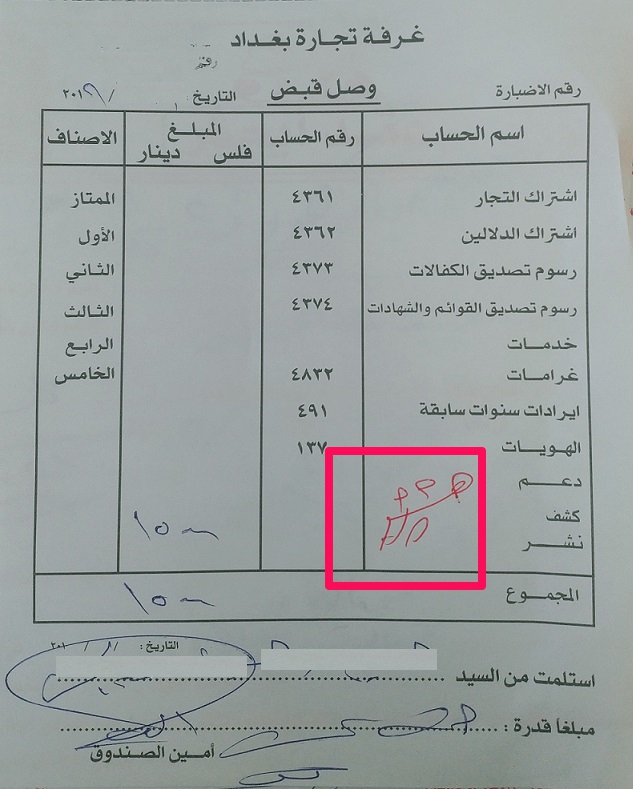 غرفة تجارة بغداد
رقم
رقم الاضبارة وصل قبض التاريخ : / ٢٠١٩
اسم الحساب رقم الحساب المبلغ الاصناف
فلس دينار
اشتراك التجار ٤٣٦١ الممتاز
اشتراك الدلالين ٤٣٦٢ الأول
رسوم تصديق الكفالات ٤٣٧٣ الثاني
رسوم تصديق القوائم والشهادات ٤٣٧٤ الثالث
خدمات الرابع
غرامات ٤٨٣٢ الخامس
ايرادات سنوات سابقة ٤٩١
الهويات ١٣٧
دعم
كشف
نشر
المجموع
التاريخ : / / ٢٠١
استلمت من السيد
مبلغاً قدرة :
أمين الصندوق